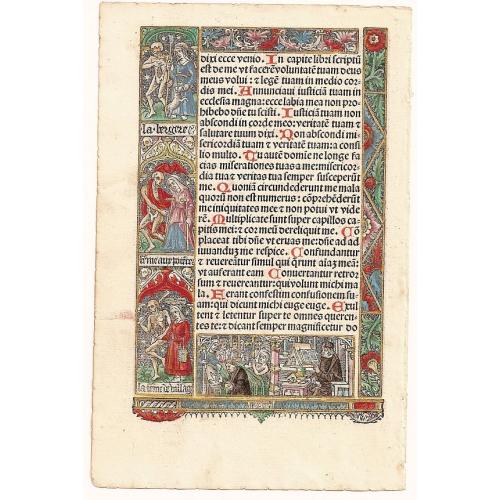 dixi ecce venio. In capite libri scriptū
est de me vt facerē voluntatē tuam deus
meus volui: ⁊ legē tuam in medio cor⸗
dis mei. Annunciaui iusticiā tuam in
ecclesia magna: ecce labia mea non pro⸗
hibebo dn̄e tu scisti. Iusticiā tuam non
abscondi in corde meo: veritatē tuam ⁊
salutare tuum dixi. Non abscondi mi⸗
sericordiā tuam ⁊ veritatē tuam: a consi
lio multo. Tu autē domīe ne longe fa
cias miserationes tuas a me: misericor⸗
dia tua ⁊ veritas tua semper susceperūt
me. Quoniā circundederunt me mala
quorū non est numerus: cōprehēderūt
me iniquitates mee ⁊ non potui vt vide
rē. Multiplicate sunt super capillos ca⸗
pitis mei: ⁊ cor meū dereliquit me. Cō
placeat tibi dn̄e vt eruas me: dn̄e ad ad
iuuandū me respice. Confundantur
⁊ reuereātur simul qui q̄runt aīaȝ meā:
vt auferant eam Conuertantur retror
sum ⁊ reuereantur: qui volunt michi ma
la. Ferant confestim confusionem su⸗
am: qui dicunt michi euge euge. Exul
tent ⁊ letentur super te omnes queren⸗
tes te: ⁊ dicant semper magnificetur do
la bergere